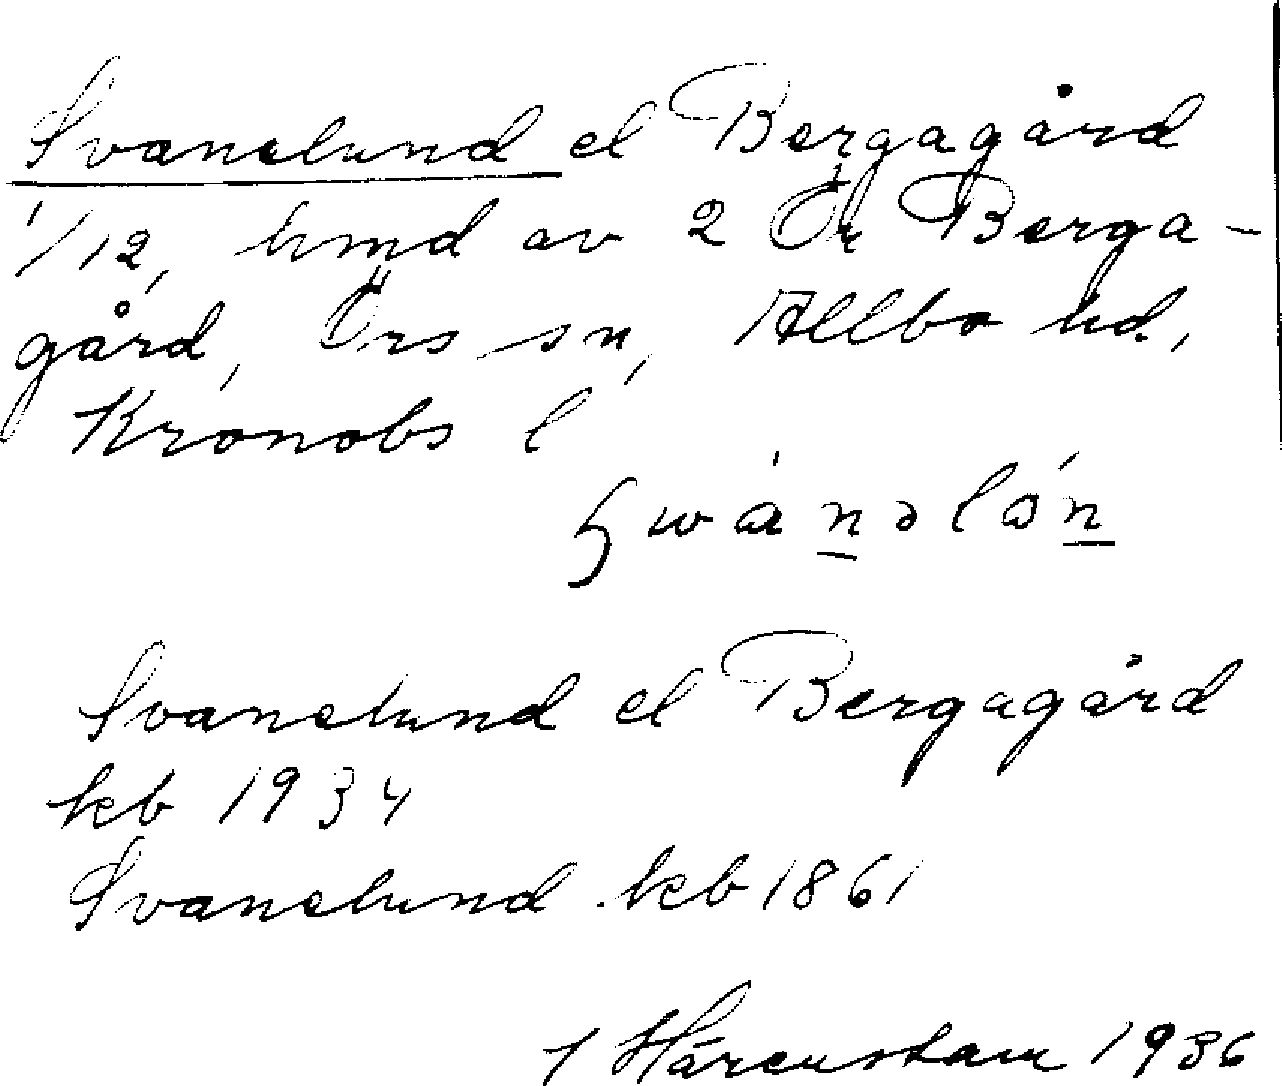 Svanelund el Bergagård
1/12, hmd av 2 Ör Berga-
gård, Örs sn, Allbo hd,
Kronobs l
Svanelund el Bergagård
kb 1934
Svanelund kb 1861
Härenstam 1936